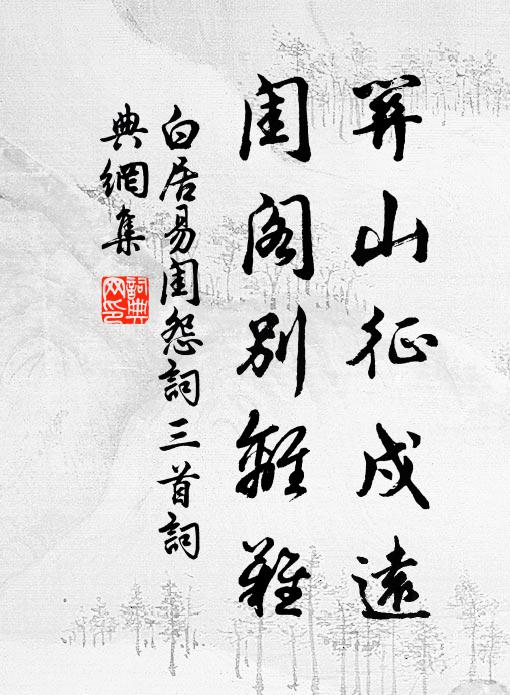 關山征戍遠
閨閣別離難
白居易閨怨詞三首詞
典網集
詞典
网印